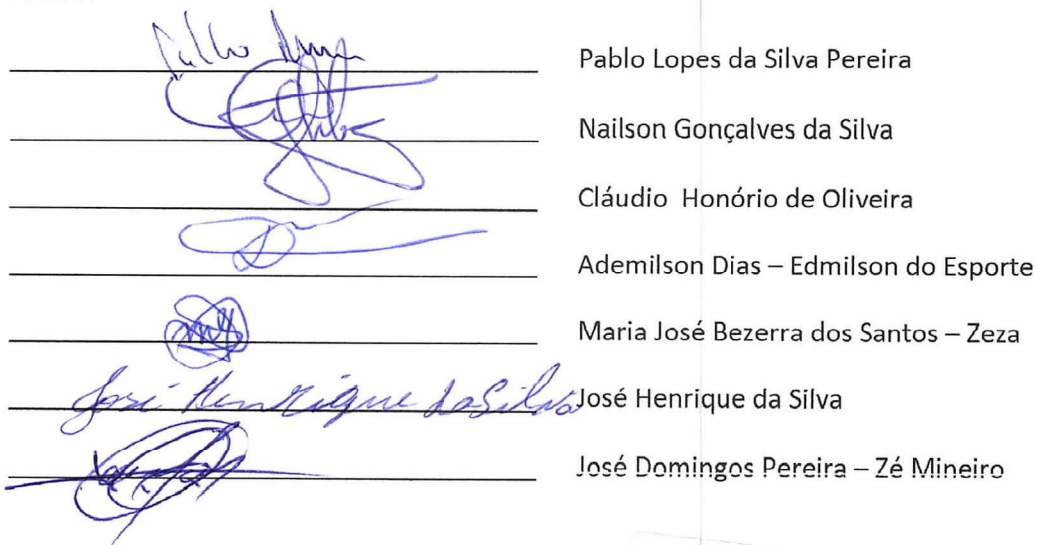 Pablo Lopes da Silva Pereira
Nailson Gonçalves da Silva
Cláudio Honório de Oliveira
Ademilson Dias – Edmilson do Esporte
Maria José Bezerra dos Santos – Zeza
José Henrique da Silva José Henrique da Silva
José Domingos Pereira – Zé Mineiro